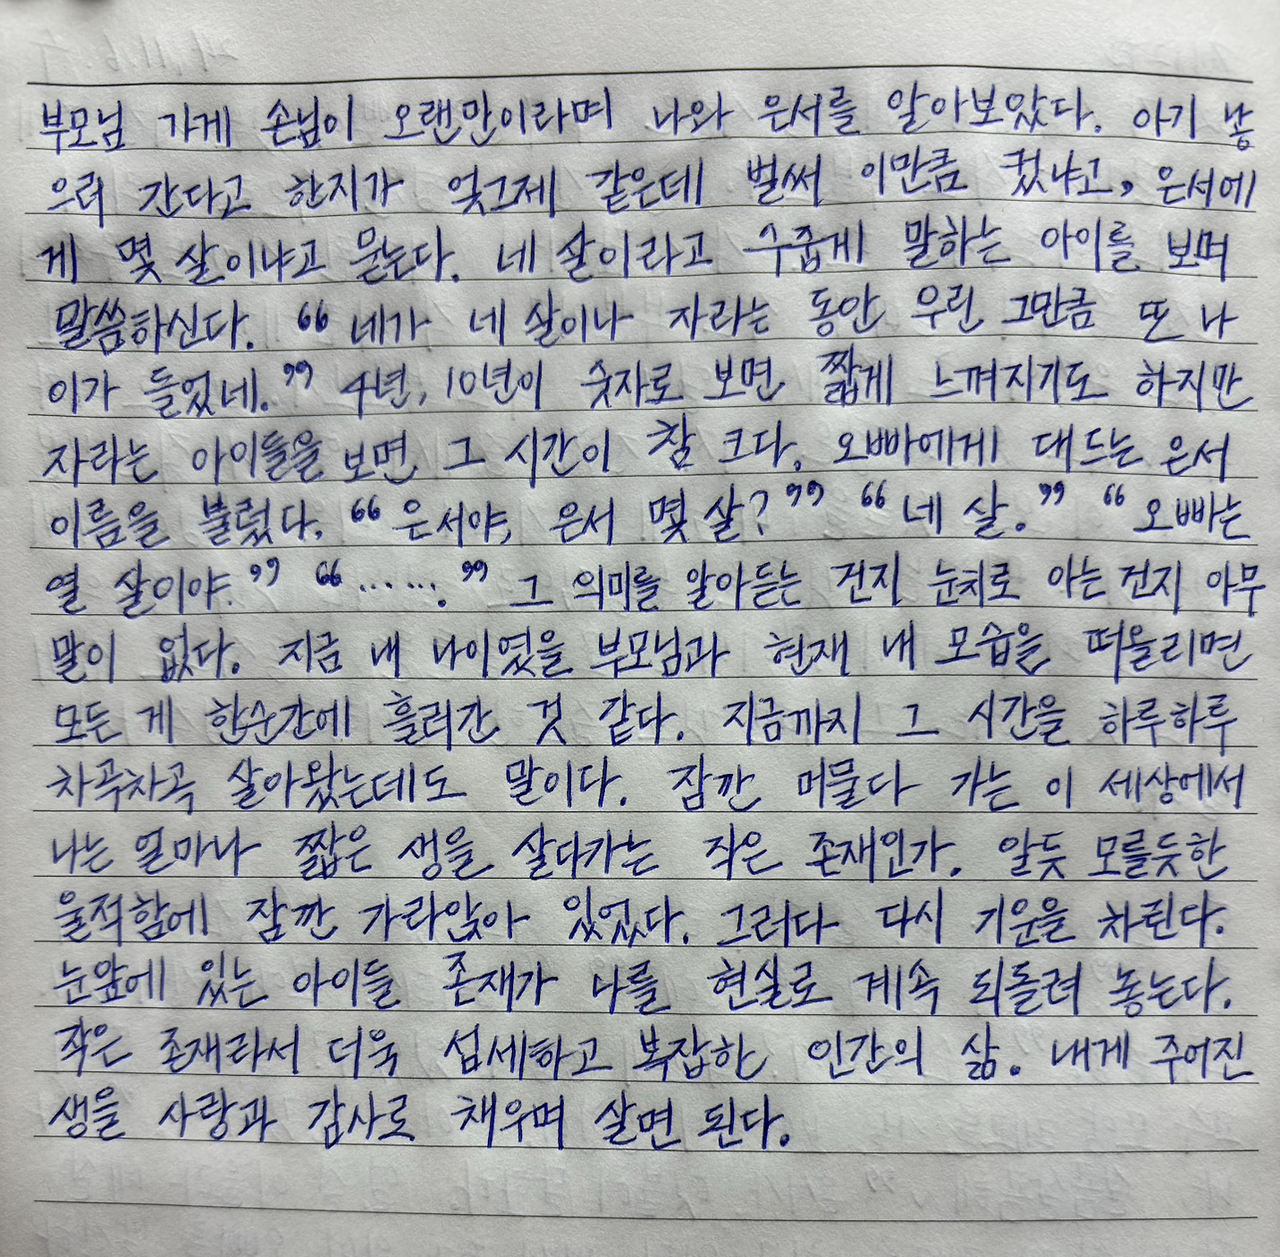 부모님 가게 손님이 오랜만이라며 나와 은서를 알아보았다. 아기 낳
으러 간다고 한지가 엊그제 같은데 벌써 이만큼 컸냐고, 은서에
게 몇 살이냐고 묻는다. 네 살이라고 수줍게 말하는 아이를 보며
말씀하신다. “네가 네 살이나 자라는 동안 우린 그만큼 또 나
이가 들었네.” 4년, 10년이 숫자로 보면 짧게 느껴지기도 하지만
자라는 아이들을 보면 그 시간이 참 크다. 오빠에게 대드는 은서
이름을 불렀다. “은서야, 은서 몇 살?” “네 살.” “오빠는
열 살이야.” “…….” 그 의미를 알아듣는 건지 눈치로 아는건지 아무
말이 없다. 지금 내 나이였을 부모님과 현재 내 모습을 떠올리면
모든 게 한순간에 흘러간 것 같다. 지금까지 그 시간을 하루하루
차곡차곡 살아왔는데도 말이다. 잠깐 머물다 가는 이 세상에서
나는 얼마나 짧은 생을 살다가는 작은 존재인가. 알듯 모를듯한
울적함에 잠깐 가라앉아 있었다. 그러다 다시 기운을 차린다.
눈앞에 있는 아이들 존재가 나를 현실로 계속 되돌려 놓는다.
작은 존재라서 더욱 섬세하고 복잡한 인간의 삶. 내게 주어진
생을 사랑과 감사로 채우며 살면 된다.